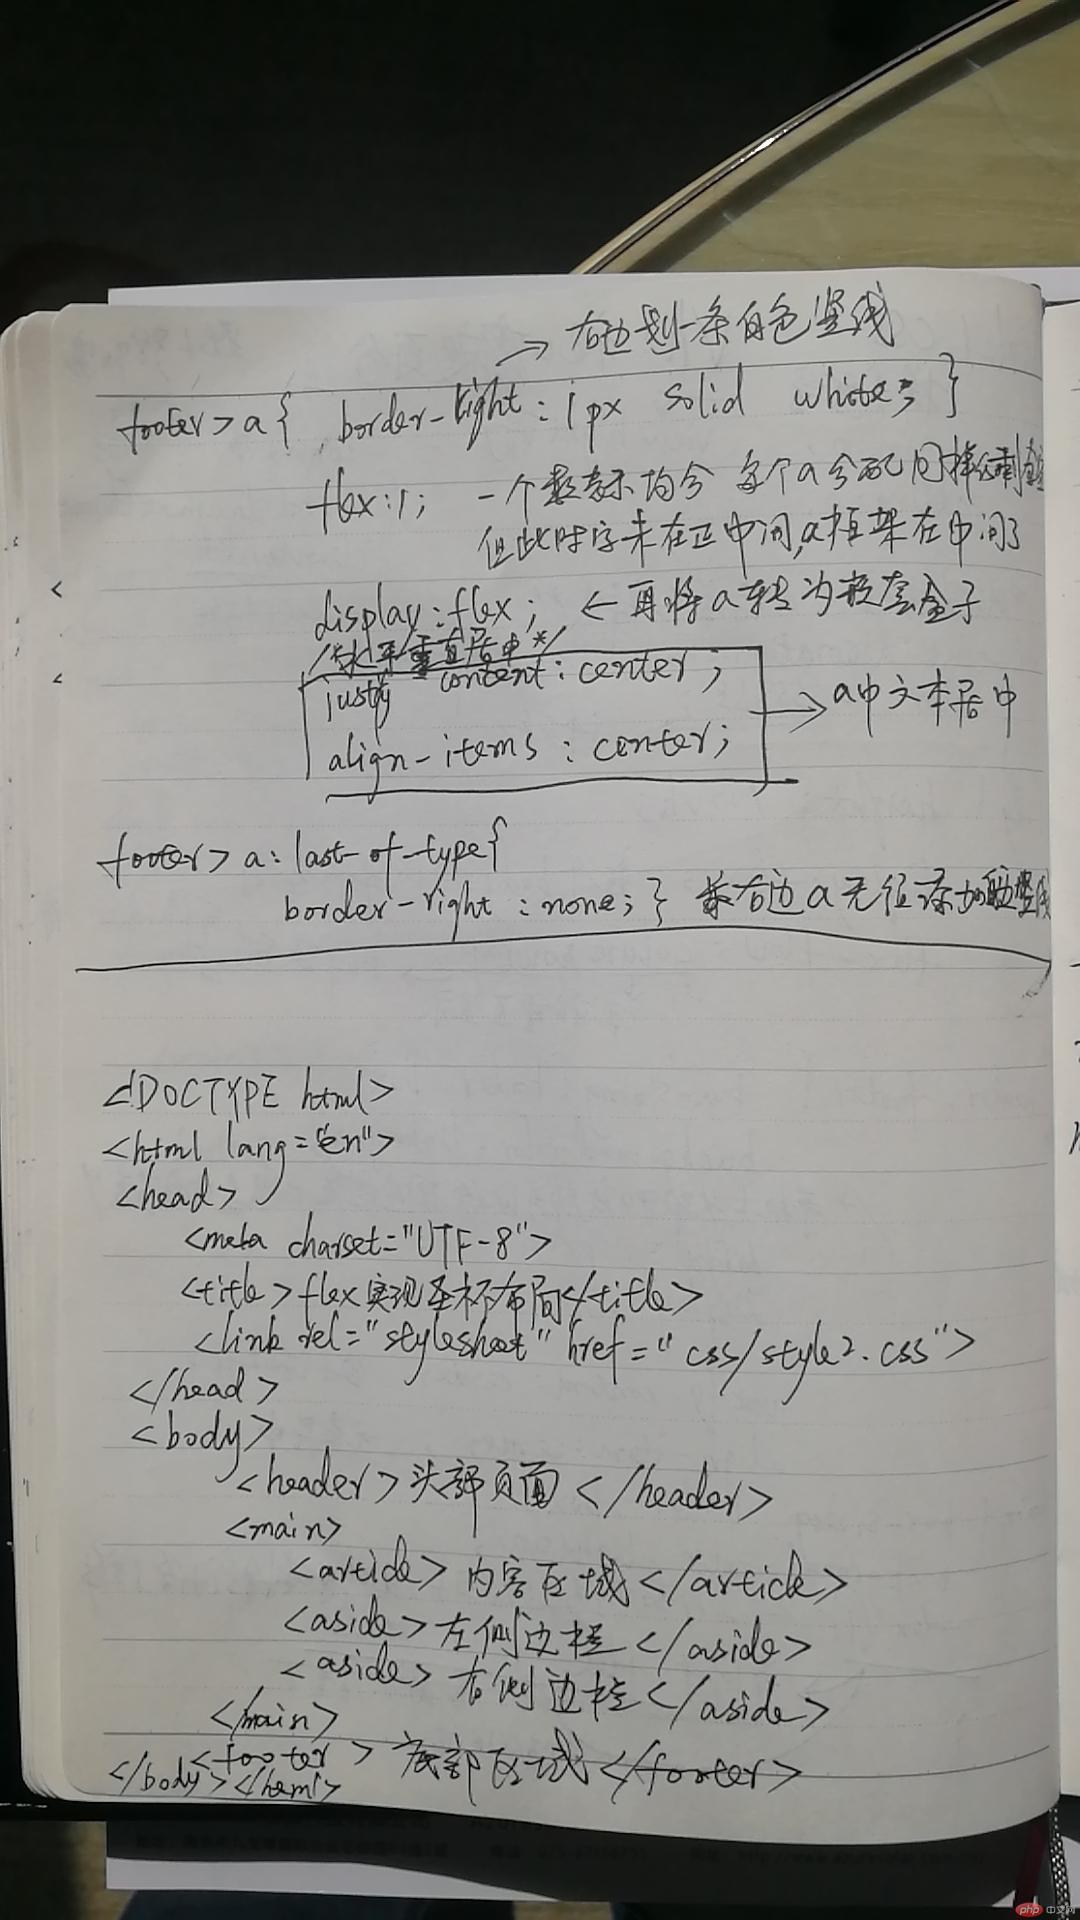 → 右边划一条白色竖线
footer>a{ border-right:1px solid white; }
flex:1; 一个数表示均分 每个a分配同样的剩
但此时字未在正中间,a框架在中间了
display:flex; ← 再将a转为嵌套盒子
/*水平垂直居中*/
justify content:center;
→ a中文本居中
align-items:center;
footer>a:last-of-type{
border-right:none;} 最右边a无须添加
<!DOCTYPE html>
<html lang="en">
<head>
<meta charset="UTF-8">
<title>flex实现圣杯布局</title>
<link rel="stylesheet" href="css/style2.css">
</head>
<body>
<header>头部页面</header>
<main>
<article>内容区域</article>
<aside>左侧边栏</aside>
<aside>右侧边栏</aside>
</main>
<footer>底部区域</footer>
</body></html>
php 中文网